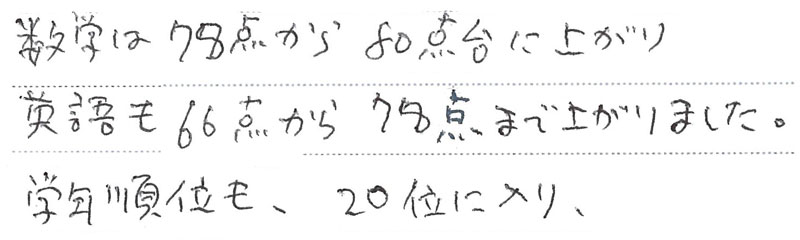 数学は78点から80点台に上がり
英語も66点から78点まで上がりました。
学年順位も、20位に入り、